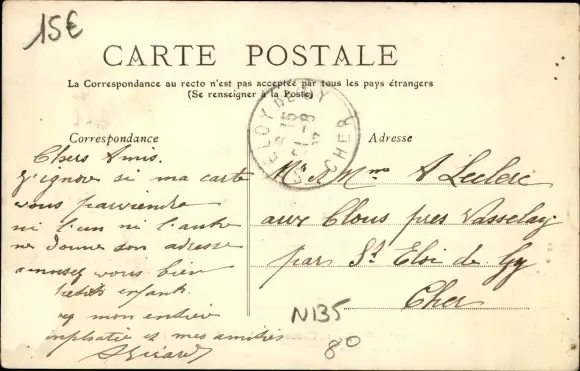 15€
CARTE POSTALE
La Correspondance au recto n'est pas acceptée par tous les pays étrangers
(Se renseigner à la Poste)
Correspondance
Chers Amis.
J'ignore si ma carte
vous parviendra
ni l'un ni l'autre
ne donne son adresse
amusez vous bien
petits enfants.
mon entière
et mes amitiés
AGirard
ELOY DE GY
CHER
Adresse
Mr & Mme A Leclerc
aux Clous près Vasselay
par St Eloi de Gy
Cher
N135
80